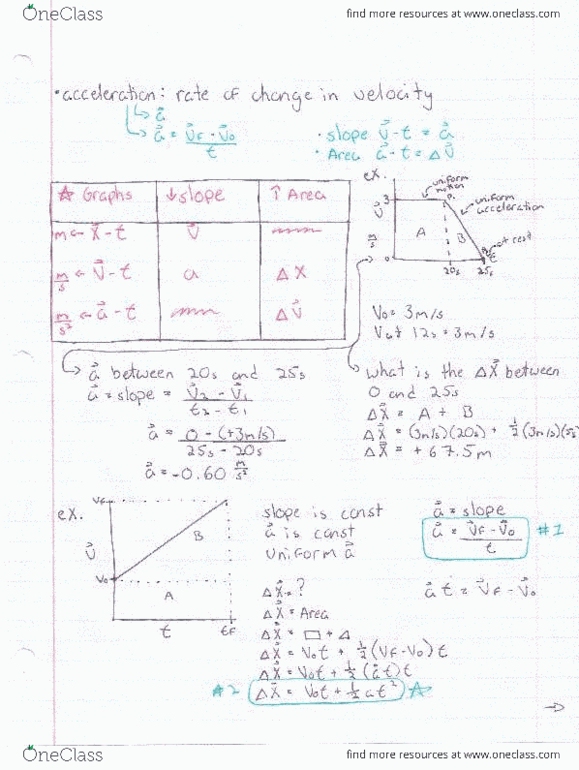 OneClass
find more resources at www.oneclass.com
• acceleration: rate of change in velocity
↳ a⃗
↳ a⃗ = v⃗F - v⃗o / t
• slope v⃗-t = a⃗
• Area a⃗-t = Δv⃗
☆ Graphs ↓ slope ↑ Area
m ← x⃗-t v⃗
m/s ← v⃗-t a Δx
m/s² ← a⃗-t Δv⃗
ex.
uniform motion
uniform acceleration
at rest
3
v⃗ m/s
A B
0 20s 25s t
Vo = 3m/s
V at 12s = 3m/s
↳ a⃗ between 20s and 25s
a⃗ = slope = v⃗2 - v⃗1 / t2 - t1
a⃗ = 0 - (+3m/s) / 25s - 20s
a⃗ = -0.60 m/s²
what is the Δx⃗ between
0 and 25s
Δx⃗ = A + B
Δx⃗ = (3m/s)(20s) + ½(3m/s)(5s)
Δx⃗ = +67.5m
ex.
VF
v⃗
Vo
B
A
t tF
slope is const
a⃗ is const
uniform a⃗
a⃗ = slope
a⃗ = v⃗F - v⃗o / t #1
a⃗t = v⃗F - v⃗o
Δx⃗ = ?
Δx⃗ = Area
Δx⃗ = □ + △
Δx⃗ = Vot + ½(VF-Vo)t
Δx⃗ = Vot + ½(a⃗t)t
#2 Δx⃗ = Vot + ½at² ☆
→
OneClass
find more resources at www.oneclass.com